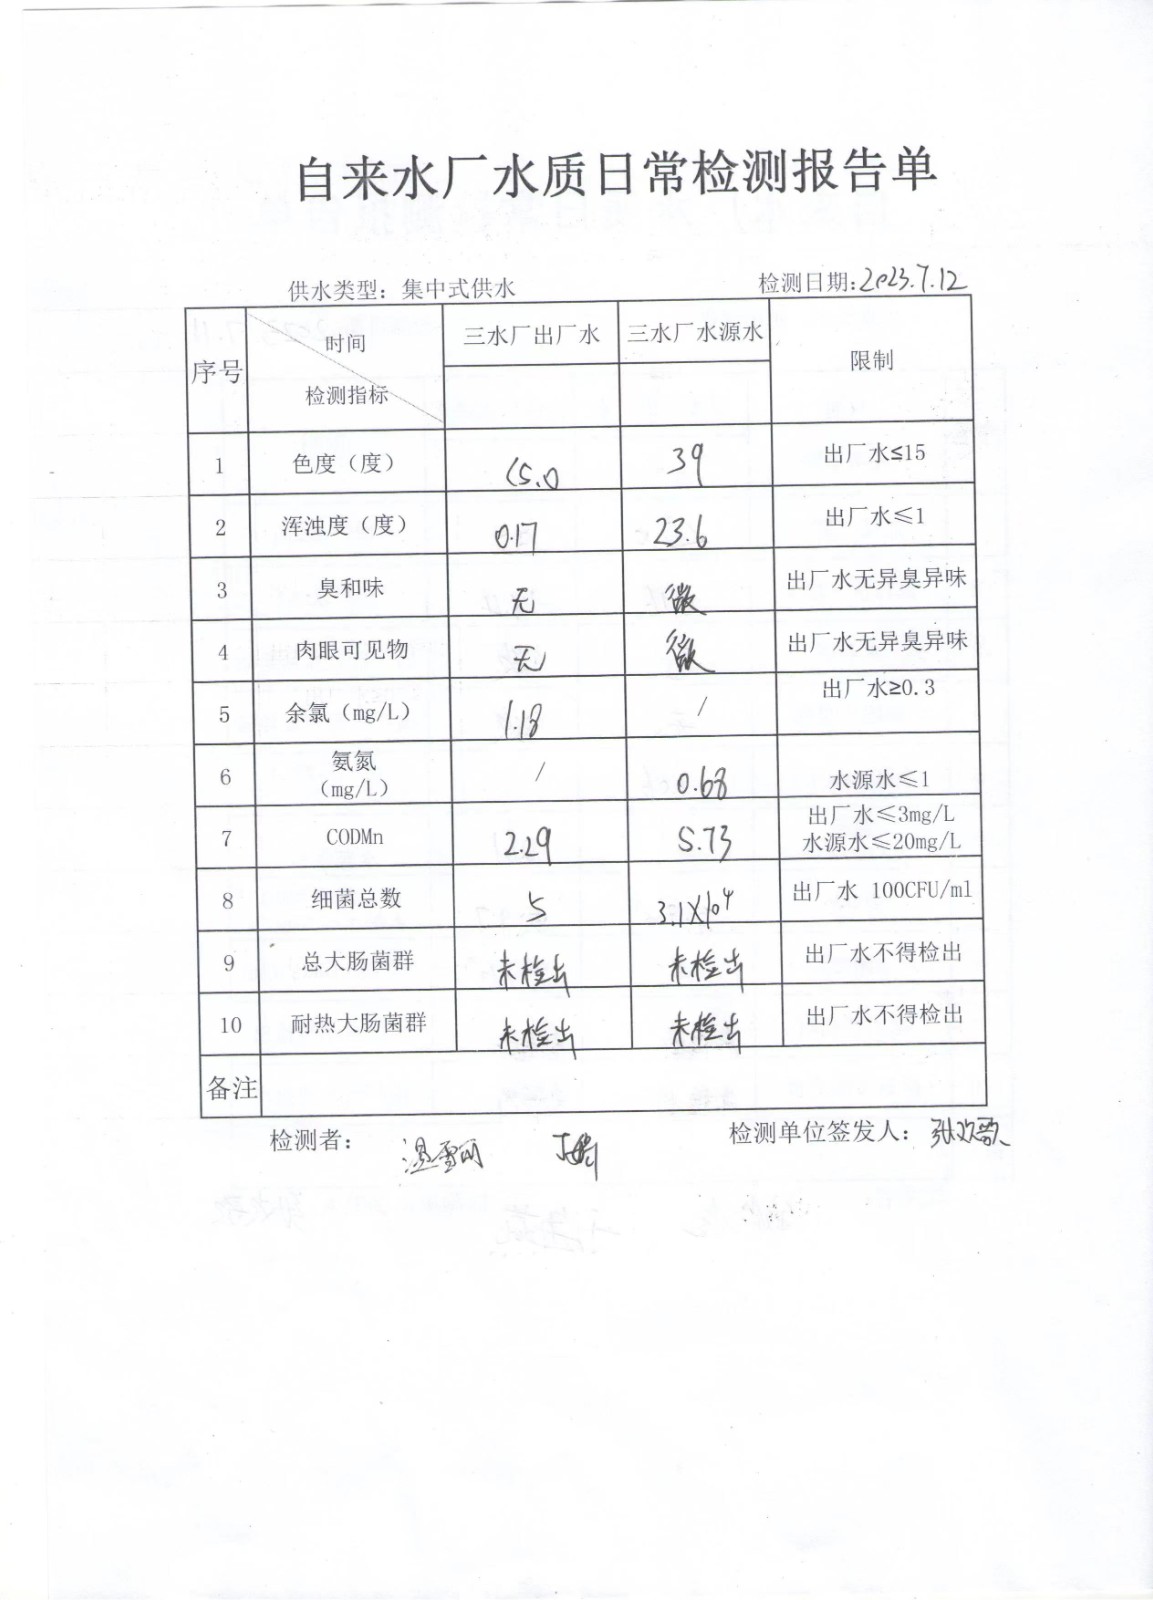 自来水厂水质日常检测报告单
供水类型：集中式供水 检测日期：2023.7.12
序号 时间 检测指标 三水厂出厂水 三水厂水源水 限制
1 色度（度） <5.0 39 出厂水≤15
2 浑浊度（度） 0.17 23.6 出厂水≤1
3 臭和味 无 微 出厂水无异臭异味
4 肉眼可见物 无 微 出厂水无异臭异味
5 余氯（mg/L） 1.18 / 出厂水≥0.3
6 氨氮 / 0.68 水源水≤1
（mg/L）
7 CODMn 2.29 5.73 出厂水≤3mg/L
水源水≤20mg/L
8 细菌总数 5 3.1X10⁴ 出厂水 100CFU/ml
9 总大肠菌群 未检出 未检出 出厂水不得检出
10 耐热大肠菌群 未检出 未检出 出厂水不得检出
备注
检测者： 温雪丽 检测单位签发人：张欢歌